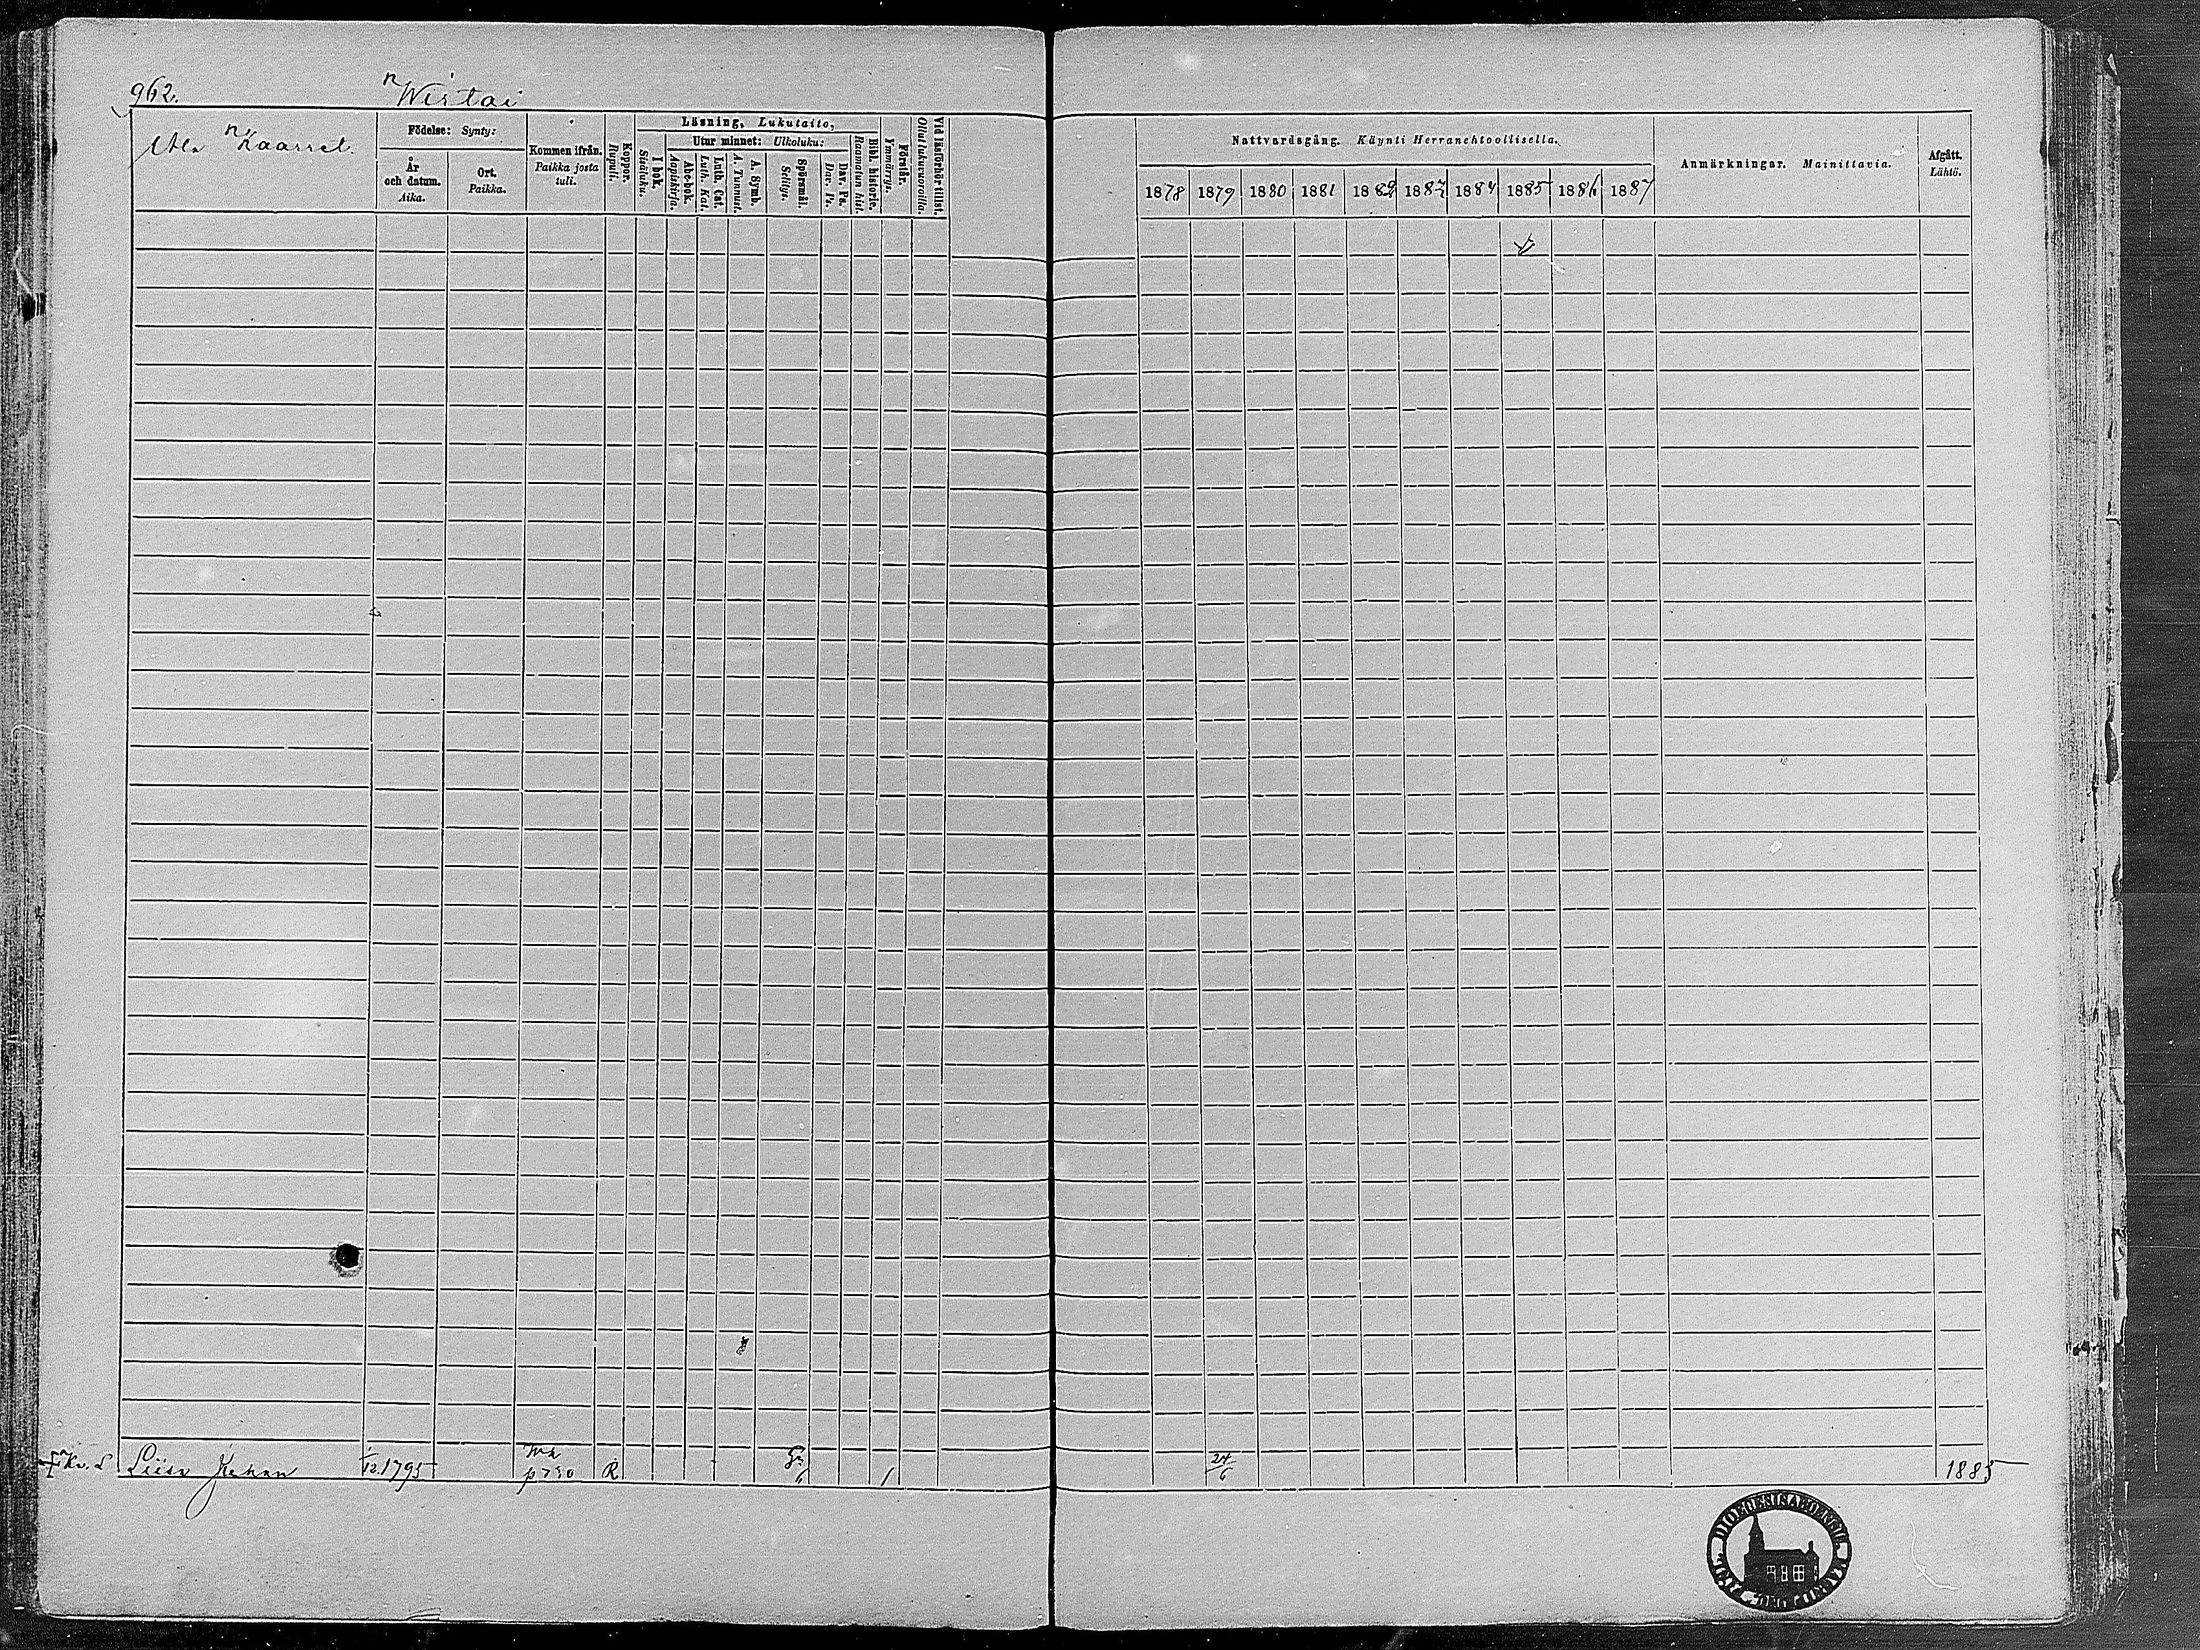 962.
Wirtai
Ala Kaarret.
Födelse: Synty:
År och datum. Aika.
Ort. Paikka.
Kommen ifrån. Paikka josta tuli.
Koppor. Rupuli.
Läsning, Lukutaito,
I bok. Sisäluku.
Utur minnet: Ulkoluku:
Abc-bok. Aapiskirja.
Luth. Cat. Luth. Kat.
A. Symb. A. Tunnust.
Spörsmål. Selitys.
Dav. Ps. Dav. Ps.
Bibl. historie. Raamatun hist.
Förstår. Ymmärrys.
Vid läsförhör tillst. Ollut lukuvuoroilla.
Nattvardsgång. Käynti Herranehtoollisella.
1878 1879 1880 1881 1882 1883 1884 1885 1886 1887
Anmärkningar. Mainittavia.
Afgått. Lähtö.
Liisa Juhan 1/12.1795 p 730 R 1 24/6 1885
DIOECESIS ABOENSIS